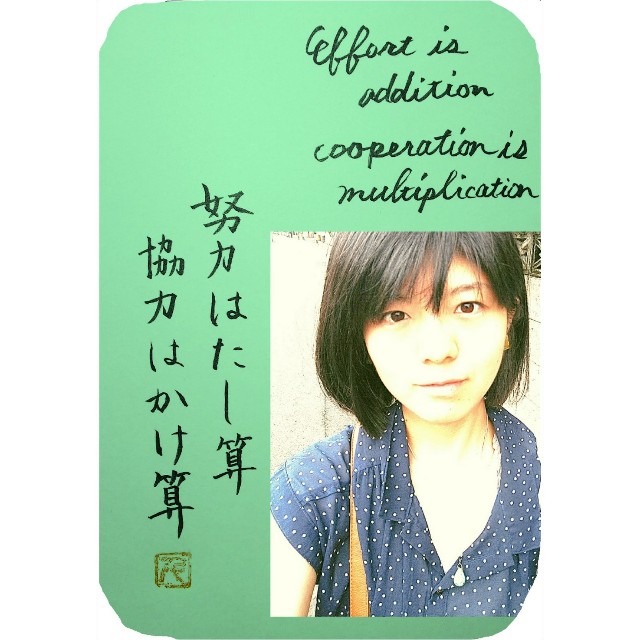 Effort is
addition
cooperation is
multiplication
努力はたし算
協力はかけ算